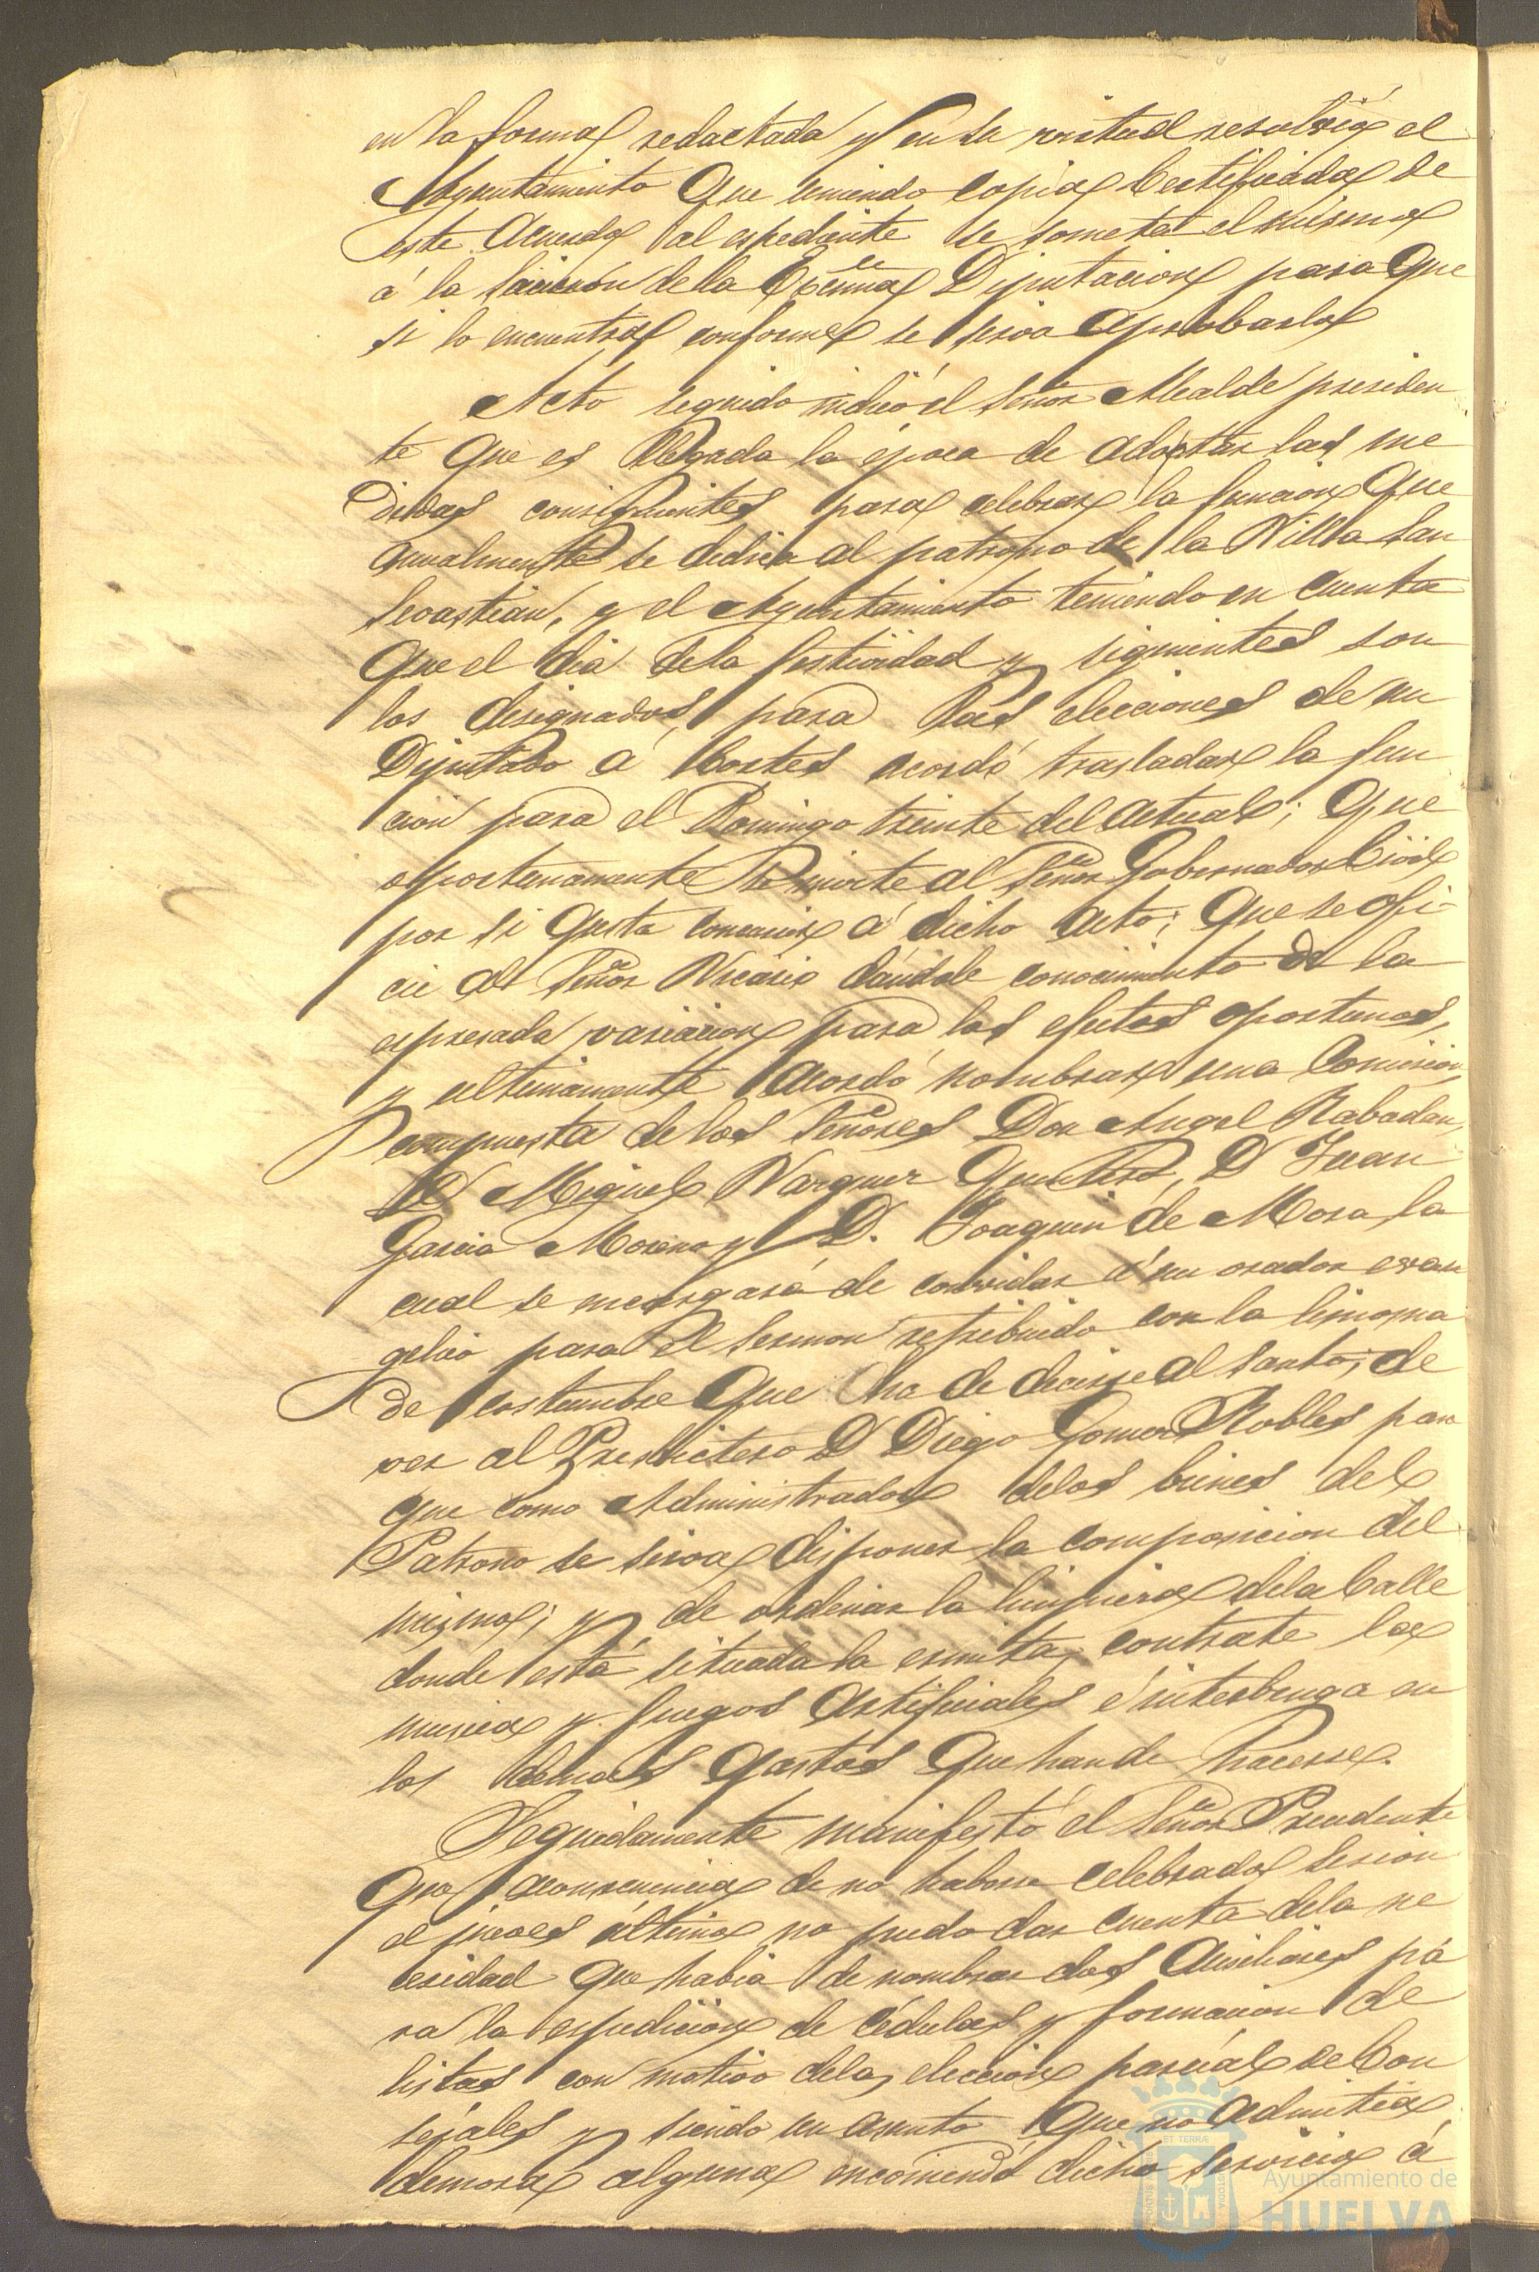 en la forma redactada y en su virtud resolvió el
Ayuntamiento que uniendo copia certificada de
este acuerdo al espediente se someta el mismo
á la sancion de la Excma Diputacion para que
si lo encuentra conforme se sirva aprobarlo
Acto seguido indicó el Señor Alcalde presiden
te que es llegada la época de adoptar las me
didas consiguientes para celebrar la funcion que
anualmente se dedica al patrono de la Villa San
Sevastian, y el Ayuntamiento teniendo en cuenta
que el dia de la festividad y siguientes son
los designados para las elecciones de un
Diputado á Cortes acordó trasladar la fun
cion para el Domingo treinte del actual; que
oportunamente se invite al Señor Gobernador Civil
por si gusta concurrir á dicho acto; que se ofi-
cie al Señor Vicario dándole conocimiento de la
espresada variacion para los efectos oportunos,
y ultimamente acordó nombrar una Comision
compuesta de los Señores Don Angel Rabadan,
D Miguel Vazquez D Juan
Garcia Moreno y D. Joaquin de Mora la
cual se encargará de convidar á un orador evan
gelico para el sermon retribuido con la limosna
de costumbre que ha de decirse al Santo; de
ver al Presbictero D Diego Gomez Robles para
que como Administrador de los bienes del
Patrono se sirva disponer la composicion del
mismo; y de ordenar la limpieza de la Calle
donde está situada la ermita, contrate la
musica y fuegos artificiales é interbenga en
los demas gastos que han de hacerse.
Seguidamente manifestó el Señor Presidente
que aconsecuencia de no haberse celebrado sesion
el jueves último no pudo dar cuenta de la ne
cesidad que habia de nombrar dos Ausiliares pa
ra la espedicion de cédulas y formacion de
listas con motivo de la eleccion parcial de Con
sejales y siendo un asunto que no admitia
demora alguna encomendó dicho servicio á
Ayuntamiento de
HUELVA